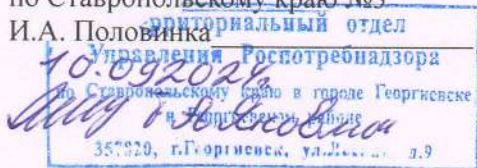 по Ставропольскому краю №3
И.А. Половинка
территориальный отдел
Управления Роспотребнадзора
10.09.2024
по Ставропольскому краю в городе Георгиевске
и Георгиевском районе
357820, г.Георгиевск, д.9